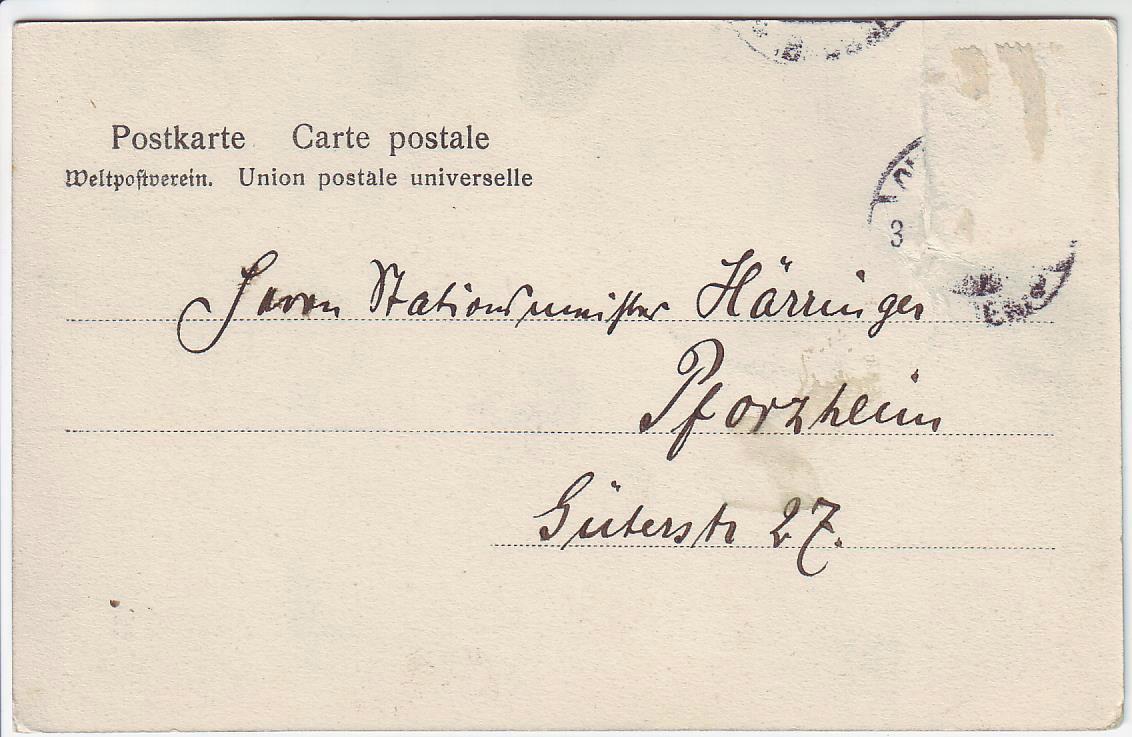 Postkarte Carte postale
Weltpostverein. Union postale universelle
Herrn Stationsmeister Härringer
Pforzheim
Güterstr 27.
3